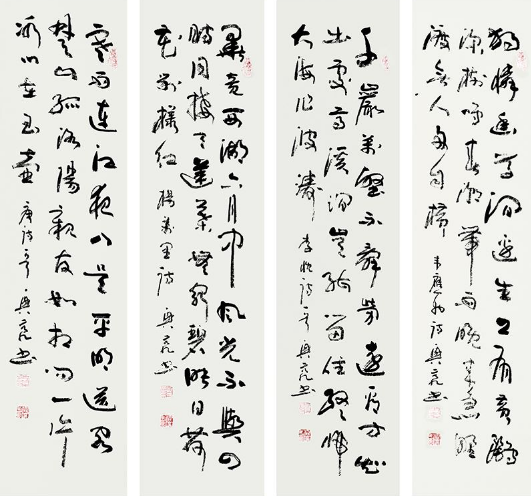 獨憐幽草澗邊生上有黃鸝
深樹鳴春潮帶雨晚來急野
渡無人舟自橫 韋應物詩 興亮書
千巖萬壑不辭勞遠看方知
出處高溪澗豈能留住終歸
大海作波濤 李忱詩一首 興亮書
畢竟西湖六月中風光不與四
時同接天蓮葉無窮碧映日荷
花別樣紅 楊萬里詩 興亮書
寒雨連江夜入吳平明送客
楚山孤洛陽親友如相問一片
冰心在玉壺 唐詩一首 興亮書